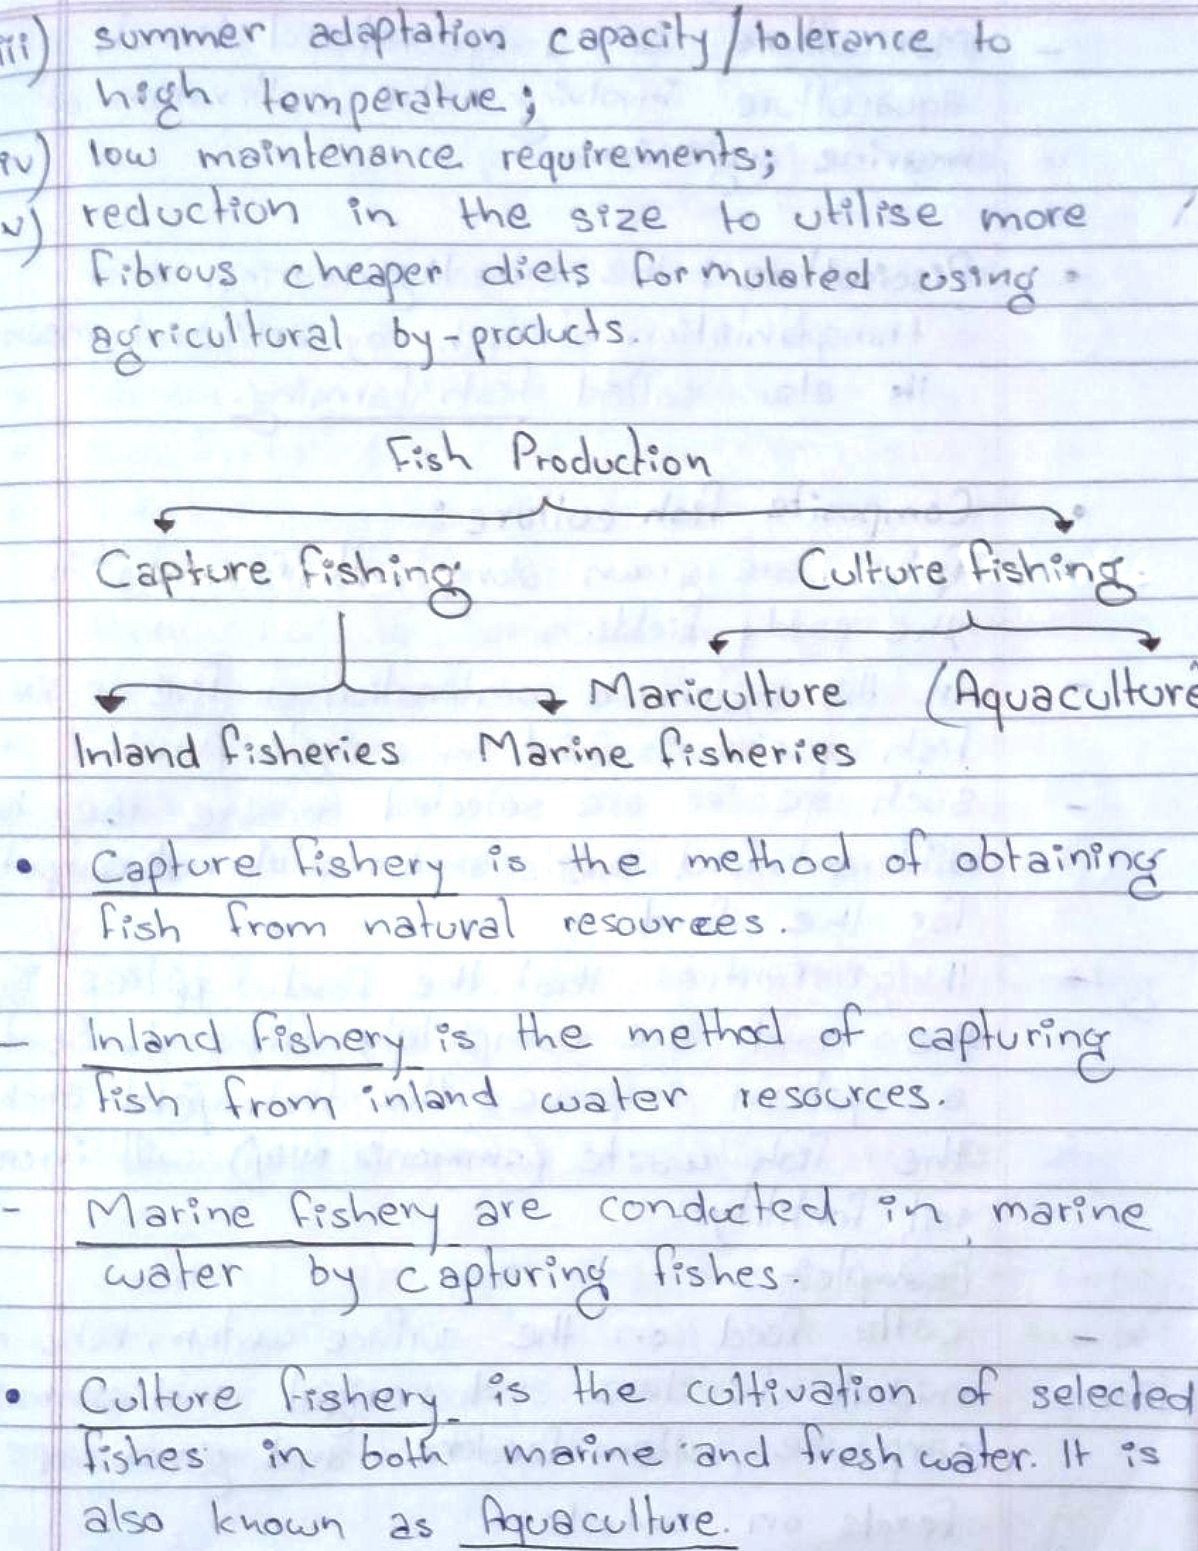 iii) summer adaptation capacity/tolerance to
high temperature;
iv) low maintenance requirements;
v) reduction in the size to utilise more
fibrous cheaper diets formulated using
agricultural by-products.
Fish Production
Capture fishing Culture fishing
Mariculture (Aquaculture
Inland fisheries Marine fisheries
• Capture fishery is the method of obtaining
fish from natural resources.
- Inland fishery is the method of capturing
fish from inland water resources.
- Marine fishery are conducted in marine
water by capturing fishes.
• Culture fishery is the cultivation of selected
fishes in both marine and fresh water. It is
also known as Aquaculture.